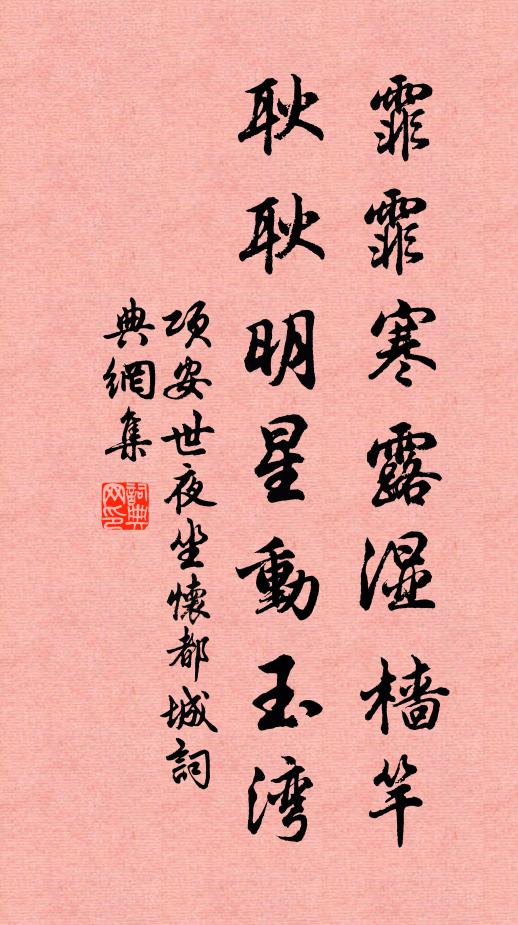 霏霏寒露湿檣竿
耿耿明星動玉湾
項安世夜坐懷都城詞
典網集
詞典网印